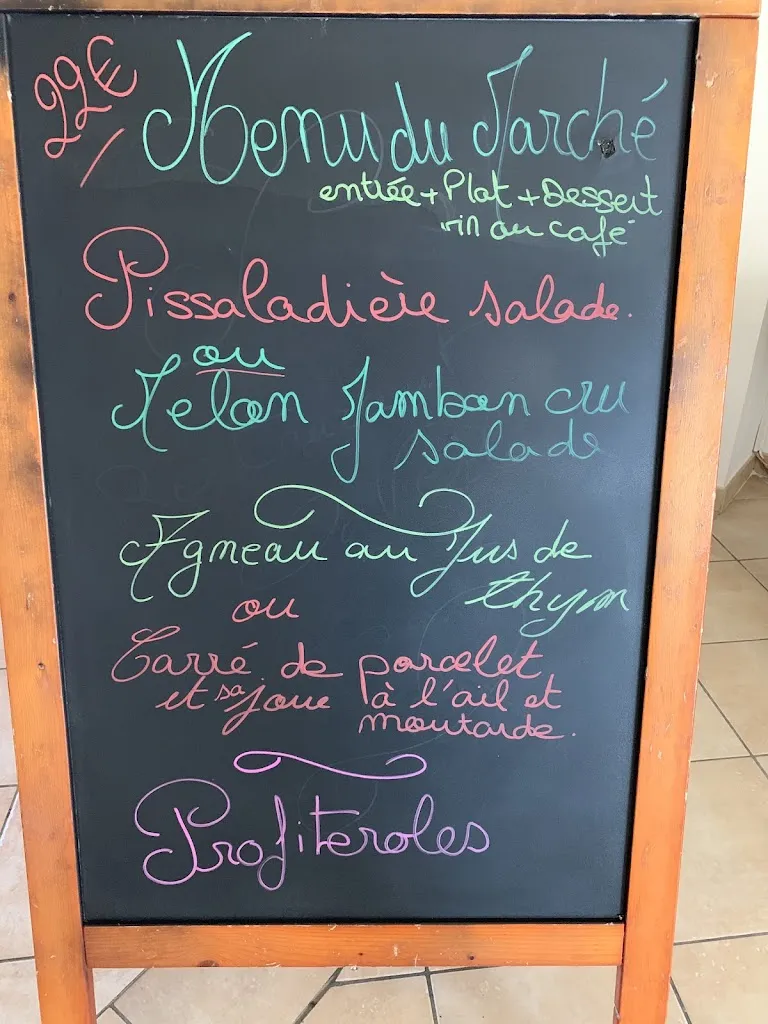 22€
Menu du Marché
entrée + Plat + Dessert
vin ou café
Pissaladière salade.
ou
Melon Jambon cru
salade
Agneau au Jus de
thym
ou
Carré de porcelet
et sa joue à l'ail et
moutarde.
Profiteroles